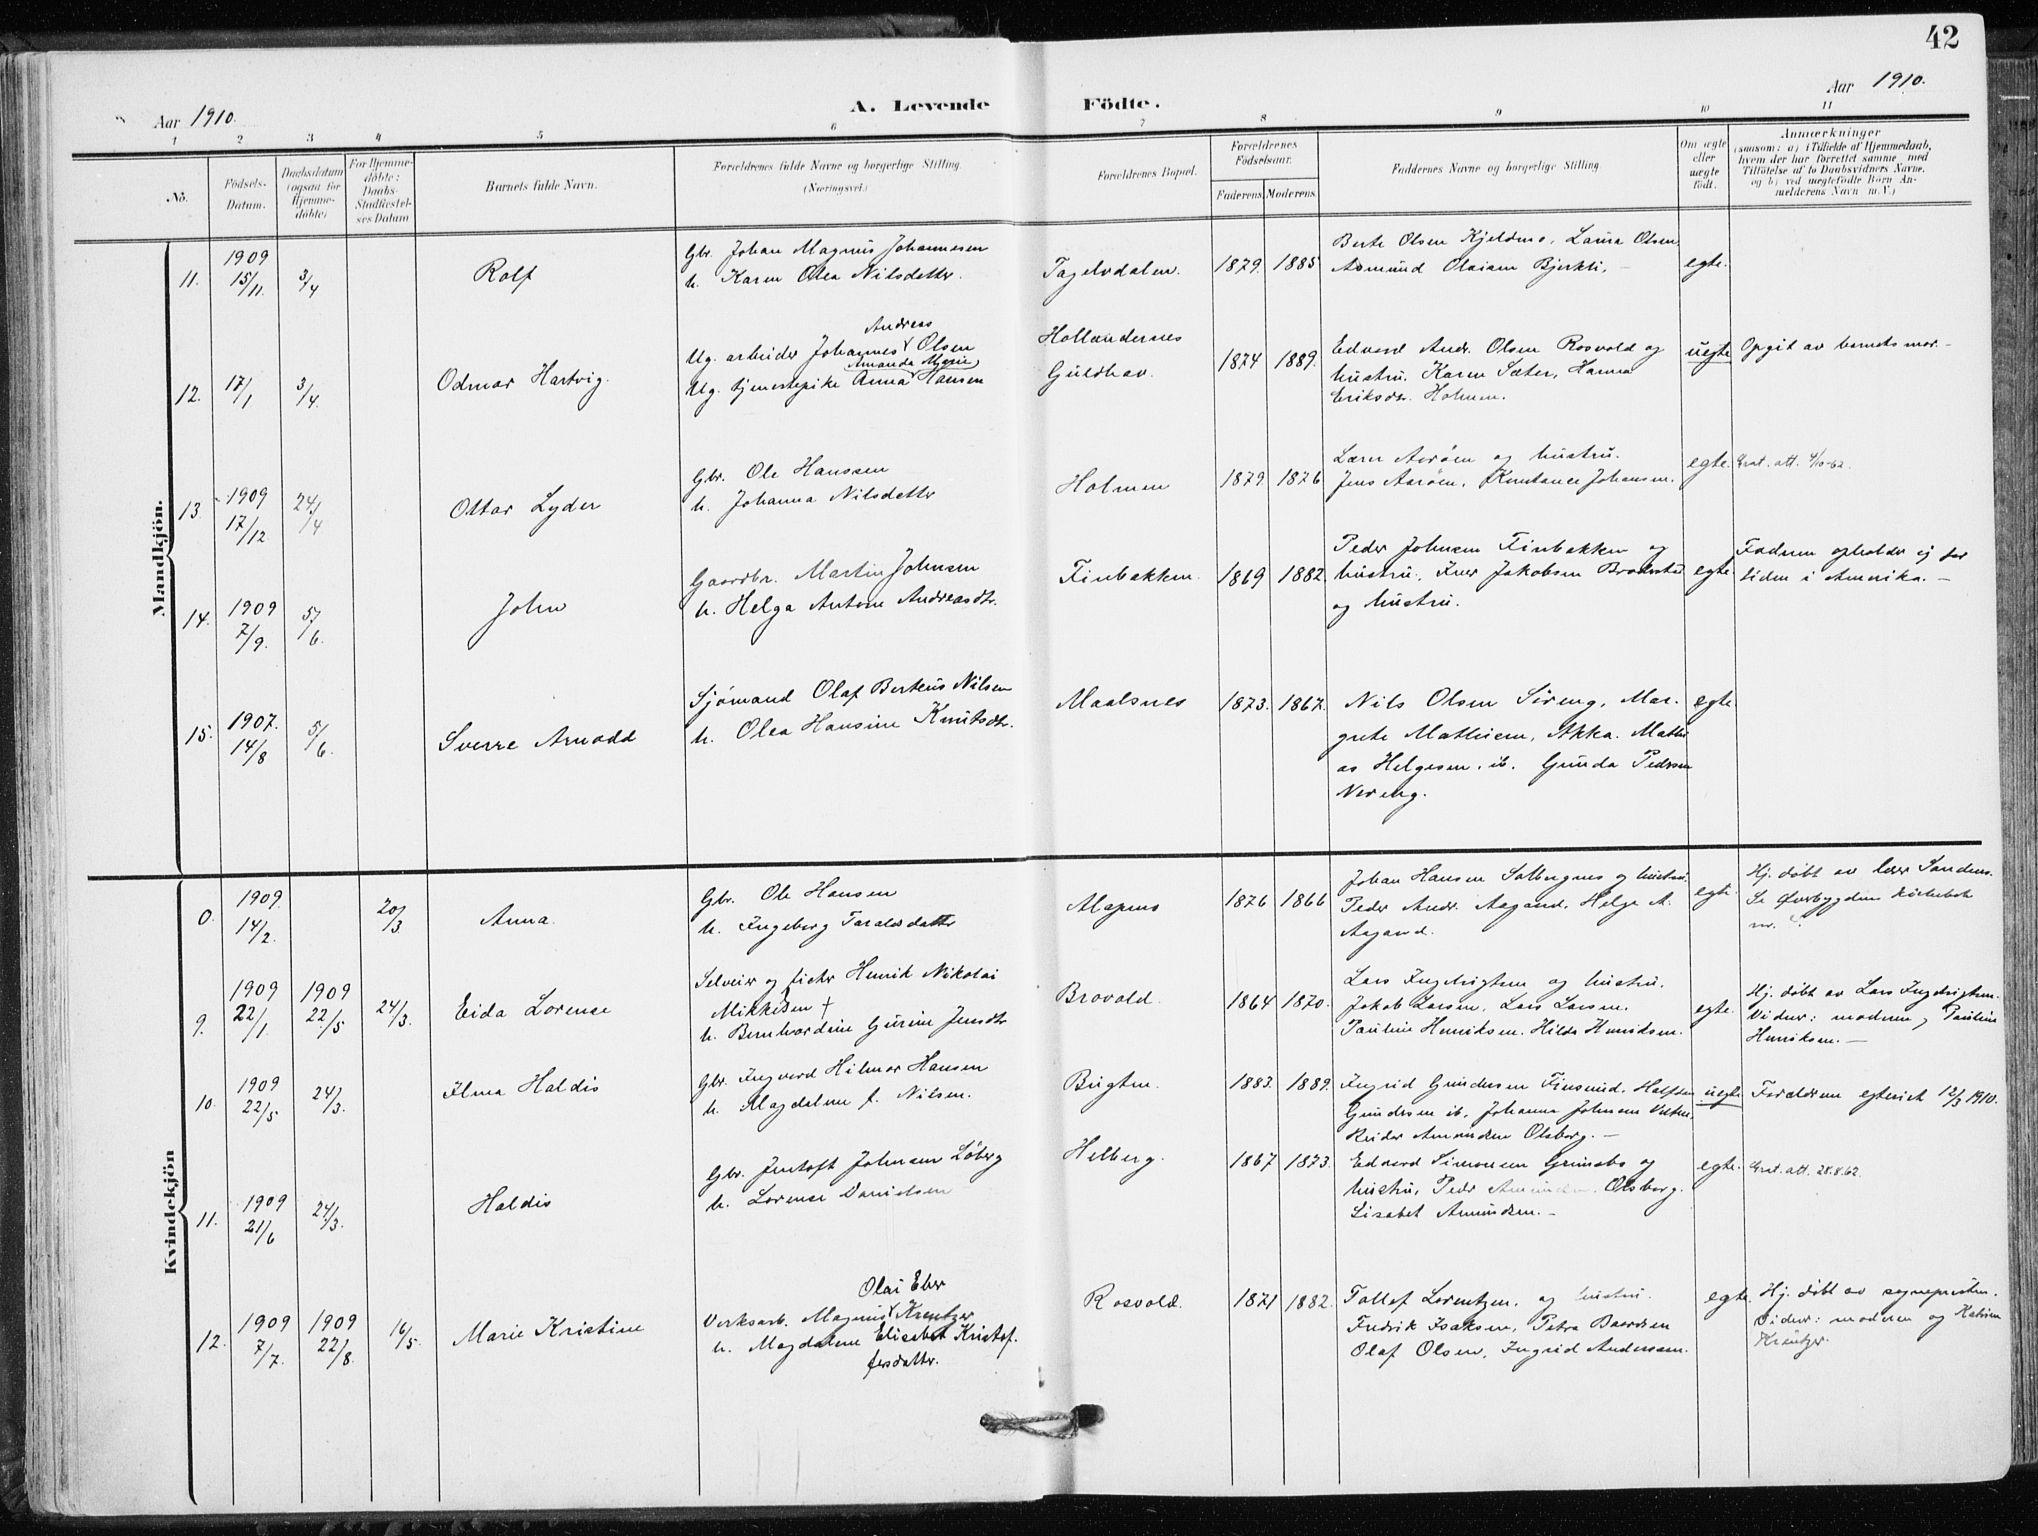 42
Aar 1910.
A. Levende Födte.
Aar 1910.
1 2 3 4 5 6 7 8 9 10 11
No.
Födsels-
Datum.
Daabsdatum
(ogsaa for
Hjemme-
döbte)
For Hjemme-
döbte:
Daabs-
Stadfæstel-
ses Datum
Barnets fulde Navn.
Forældrenes fulde Navne og borgerlige Stilling.
(Næringsvei.)
Forældrenes Bopæl.
Forældrenes
Födselsaar.
Faderens.
Moderens.
Faddernes Navne og borgerlige Stilling.
Om ægte
eller
uægte
födt.
Anmærkninger
(saasom: a) i Tilfælde af Hjemmedaab,
hvem der har forrettet samme, med
Tilföielse af to Daabsvidners Navne.
og b) ved uægtefödte Börn An-
melderens Navn m. V.)
Mandkjön.
11. 1909 15/11. 3/4 Rolf
Gbr. Johan Magnus Johannesen
h. Karen Olea Nilsdatter.
Tagelvdalen. 1879. 1885
Berte Olsen Kjeldmo, Laura Olsen,
Asmund Olaisen Bjerkli, —
egte.
12. 17/1 3/4. Odmar Hartvig.
Andreas
Ug. arbeider Johannes Olsen
Amanda Marie
Ug. tjenestepike Anna Hansen
Hollændernes
Guldhav.
1874 1889.
Edvard Andr. Olsen Rosvold og
hustru. Karen Sæter, Hanna
Eriksdr. Holmen.
uegte
Opgit av barnets mor —
13. 1909 17/12 24/4 Ottar Lyder
Gbr. Ole Hanssen
h. Johanna Nilsdatter
Holmen 1879 1876
Lærer Aaröen og hustru.
Jens Aaröen, Konstance Johansen.
egte. Grat. att. 4/10-62.
14. 1909 7/9. 5/6. John
Gaardbr. Martin Johnsen
h. Helga Antone Andreasdtr.
Finbakken. 1869 1882.
Peder Johnsen Finbakken og
hustru, Iver Jakobsen Brodstad
og hustru.
egte.
Faderen opholder sig for
tiden i Amerika. —
15. 1907. 14/8 5/6. Sverre Arnodd
Sjömand Olaf Berteus Nilsen
h. Olea Hansine Knutsdtr.
Maalsnes 1873. 1867.
Nils Olsen Söreng, Mar-
grete Mathisen, Akka. Mathi
as Helgesen. ib. Gunda Pedersen
Nereng.
egte.
Kvindekjön
0. 1909. 14/2. 20/3. Anna.
Gbr. Ole Hansen
h. Ingeborg Taraldsdatter
Alapmo 1876 1866
Johan Hansen Solbugnes og hustru.
Peder Andr. Aagand. Helge A.
Aagand.
egte.
Hj. döbt av lærer Sandnes.
Se Øverbygdens kirkebok
nr.
9. 1909 22/1 1909 22/5 24/3. Eida Lorense
Selveier og fisker Henrik Nikolai
Mikkelsen †
h. Bernhardine Gurine Jensdtr
Brovold. 1864 1870.
Lars Ingebrigtsen og hustru.
Jakob Larsen, Lars Larsen.
Pauline Henriksen. Hilda Henriksen.
egte.
Hj. döbt av Lars Ingebrigtsen.
Vidner: moderen, Pauline
Henriksen. —
10. 1909 22/5 24/3. Ilma Haldis
Gbr. Ingvard Hilmar Hansen
h. Magdalene f. Nilsen.
Bugten. 1883. 1889.
Ingrid Gundersen Finsund. Halfdan
Gundersen ib, Johanna Johnsen Vestre.
Reidar Amundsen Olsborg. —
uegte
Forældrene egteviet 12/3 1910.
11. 1909 21/6 24/3. Haldis
Gbr. Jentoft Johnsen Löberg
h. Lorense Danielsen
Helberg. 1867 1873.
Edvard Simonsen Grundbø og
hustru, Peder Amundsen. Olsborg.
Lisabet Amundsen. —
egte. Grat. att. 28.8.62.
12. 1909 7/7. 1909 22/8. 16/5. Marie Kristine
Olai Eber
Verksarb. Magnus Kreutzer
h. Magdalene Elisabet Kristof-
fersdatter.
Rosvold. 1871 1882.
Tollef Lorentzen, og hustru.
Fredrik Isaksen, Petra Baardsen
Olaf Olsen, Ingrid Andersen.
egte.
Hj. döbt av sognepresten.
Vidner: moderen og Katrine
Kreutzer.